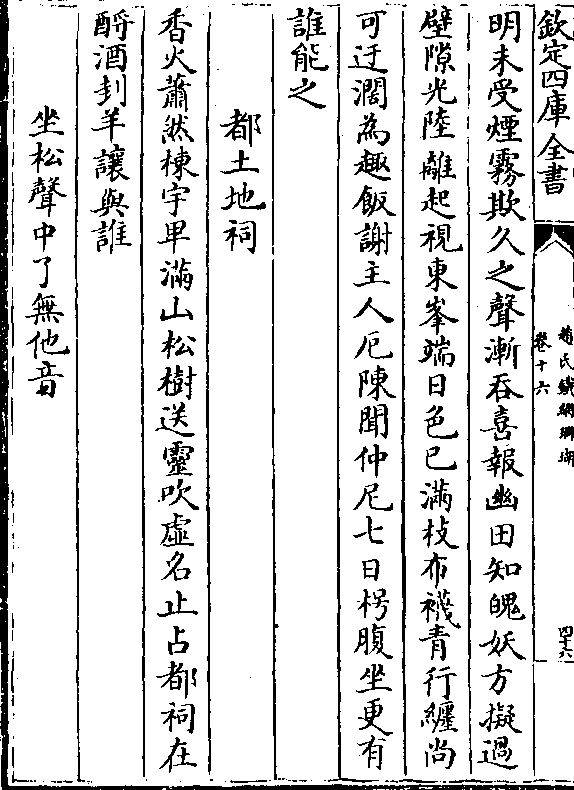 欽定四庫全書
趙氏鐵網珊瑚
卷十六
四十六
明未受煙霧欺久之聲漸吞喜報幽田知魄妖方擬過
壁隙光陸離起視東峯端日色已滿枝布襪青行纏尚
可迂濶為趣飯謝主人厄陳聞仲尼七日枵腹坐更有
誰能之
都土地祠
香火蕭然棟宇卑滿山松樹送靈吹虛名止占都祠在
酹酒刲羊讓與誰
坐松聲中了無他音